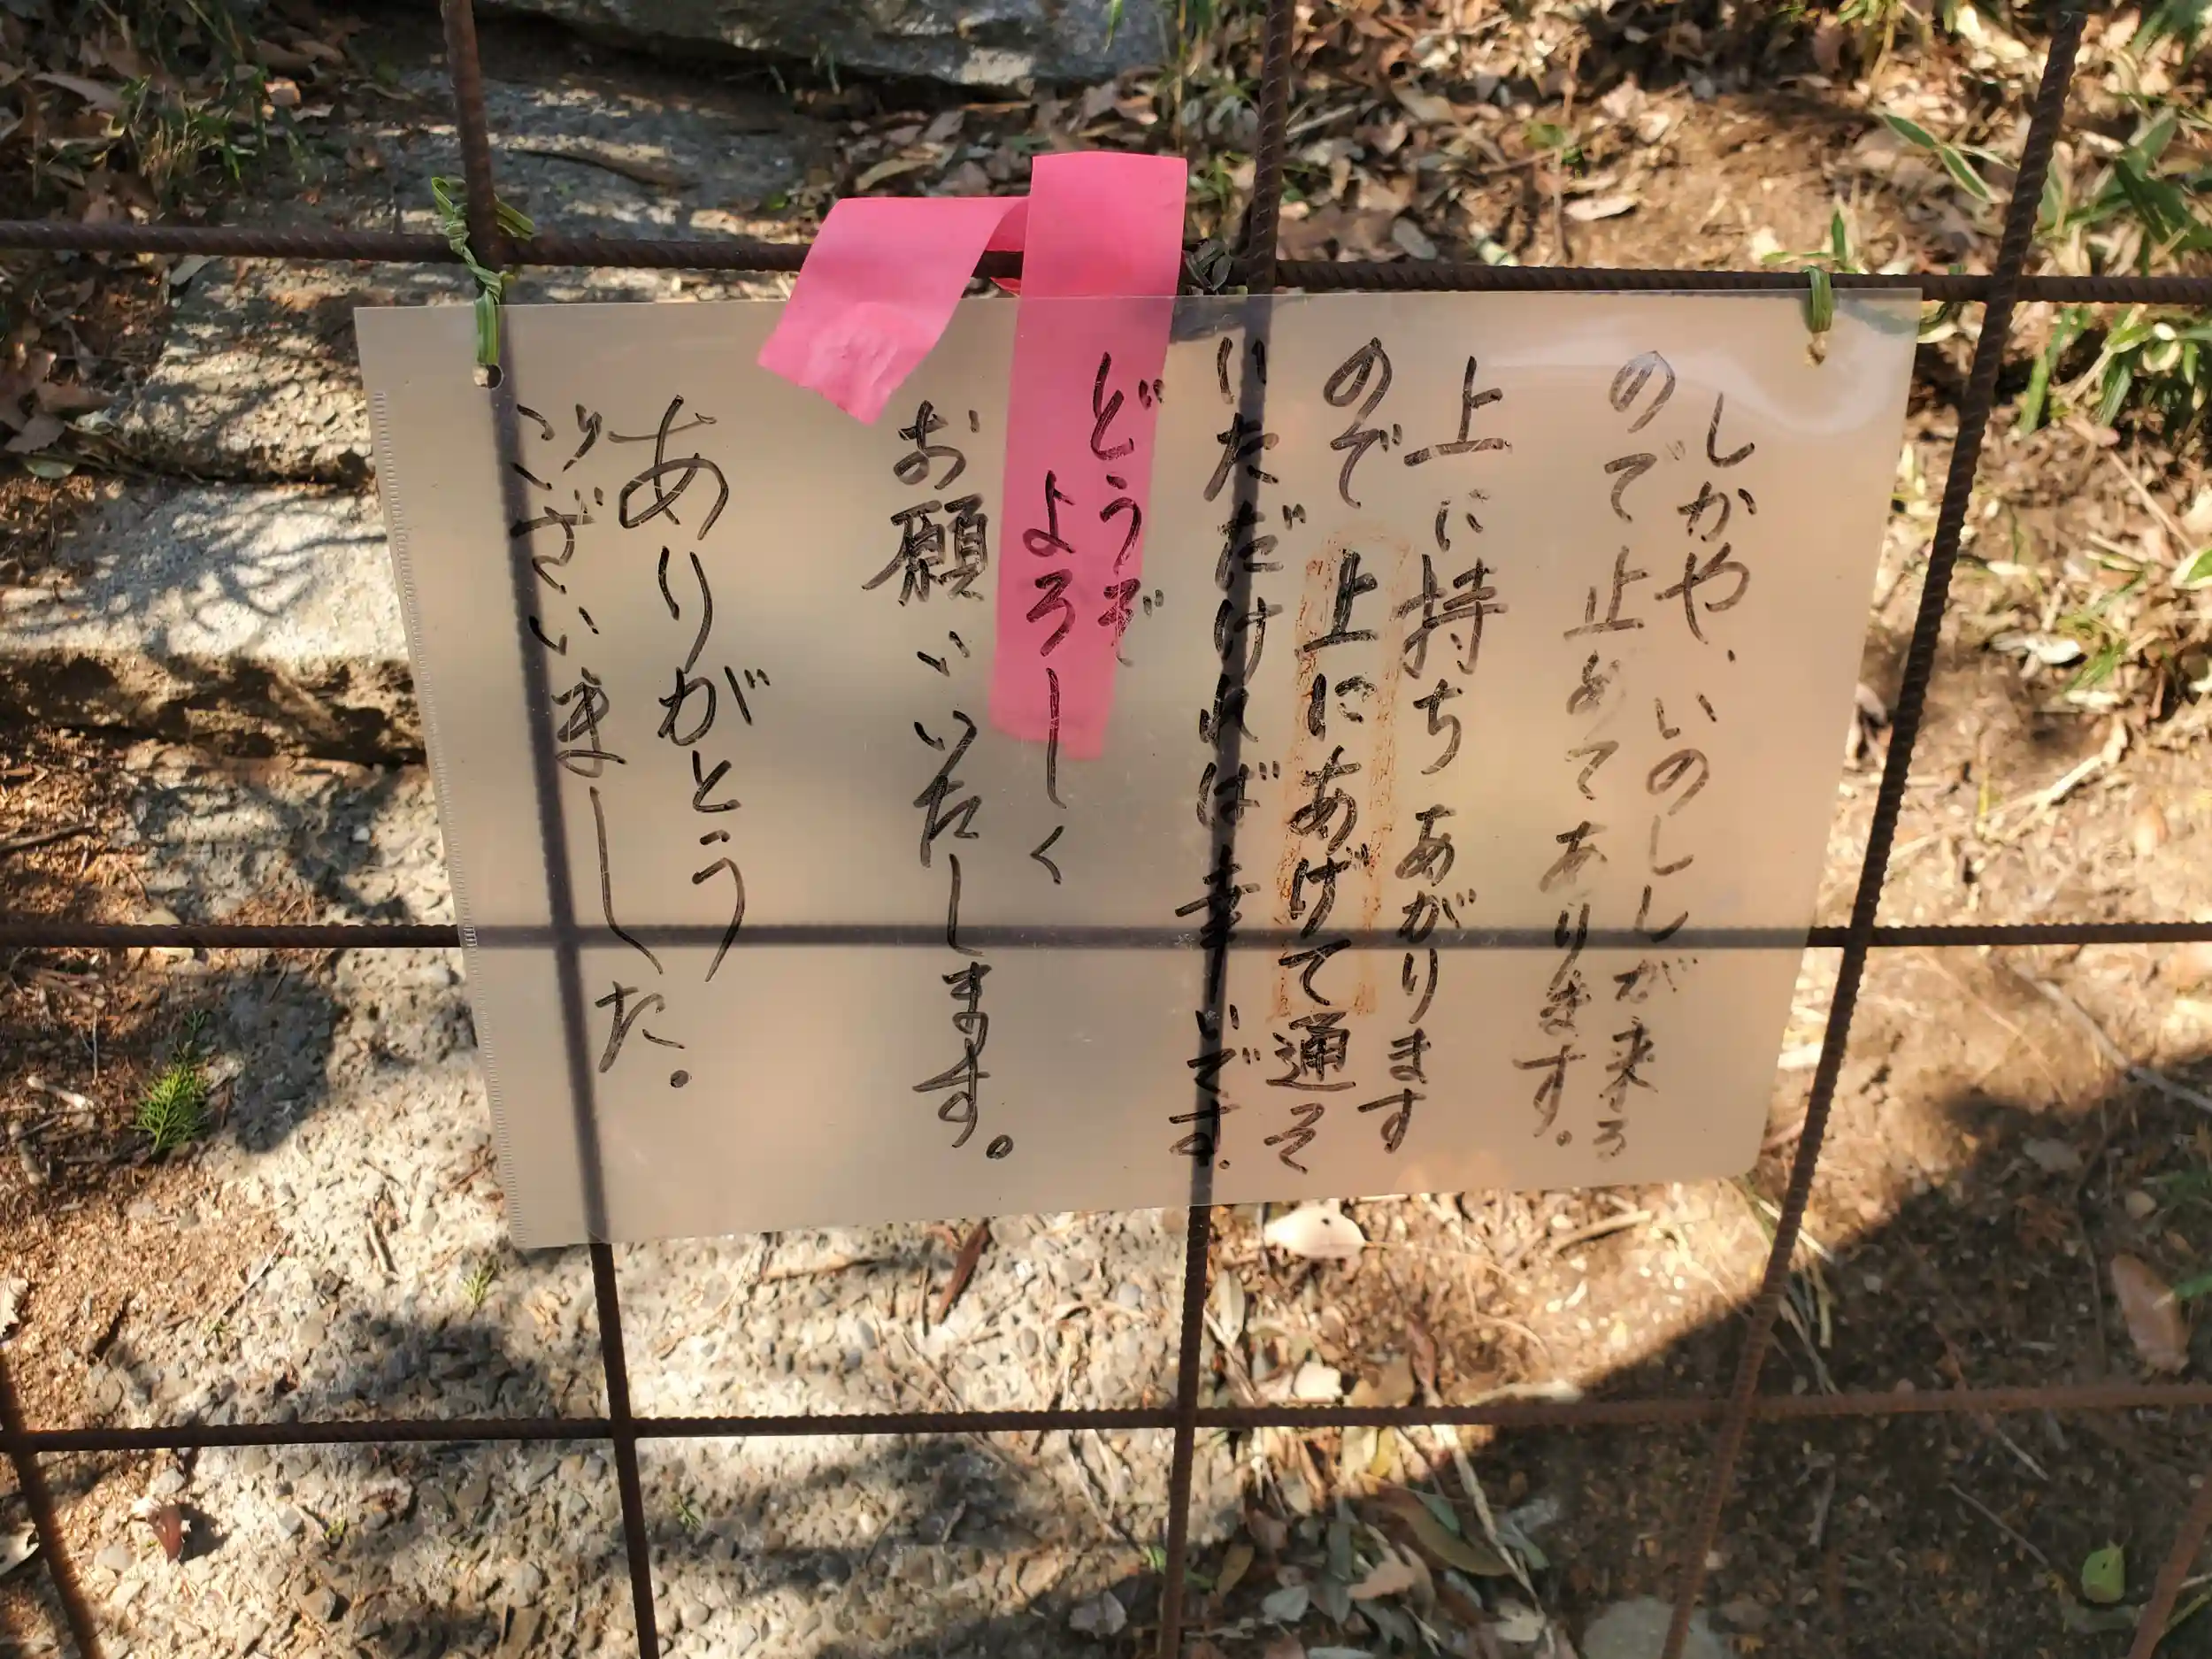 しかや、いのししが来る
ので止めてあります。
上に持ちあがります
ので上にあげて通そ
いただければ幸いです。
どうぞ
よろしく
お願いいたします。
ありがとう
ございました。